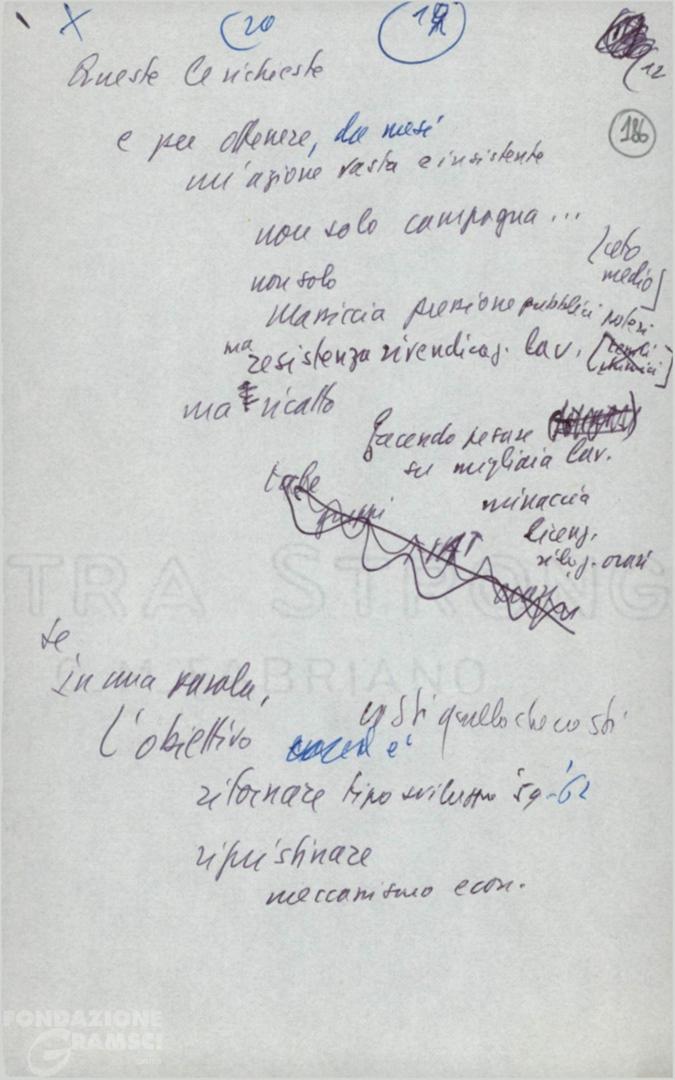 X (20 19 (12
Queste le richieste
186
e per ottenere, da mesi
un'azione vasta e insistente
non solo campagna...
[ceto
medio]
non solo
Massiccia pressione pubblici poteri
ma resistenza rivendicaz. lav.
ma ricatto
facendo pesare
su migliaia lav.
minaccia
licenz.
riduz. orari
gruppi
FIAT
TRA STRONG
FABRIANO
se
In una parola,
costi quello che costi
L'obiettivo è
ritornare tipo sviluppo '59-'62
ripristinare
meccanismo econ.
FONDAZIONE
GRAMSCI